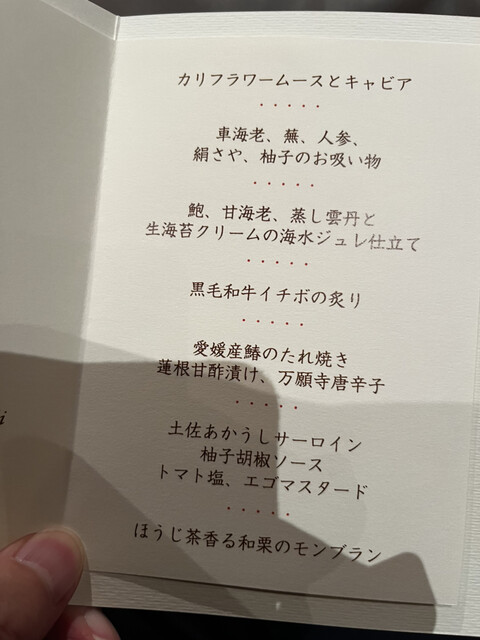 カリフラワームースとキャビア
・・・・・
車海老、蕪、人参、
絹さや、柚子のお吸い物
・・・・・
鮑、甘海老、蒸し雲丹と
生海苔クリームの海水ジュレ仕立て
・・・・・
黒毛和牛イチボの炙り
・・・・・
愛媛産鰆のたれ焼き
蓮根甘酢漬け、万願寺唐辛子
・・・・・
土佐あかうしサーロイン
柚子胡椒ソース
トマト塩、エゴマスタード
・・・・・
ほうじ茶香る和栗のモンブラン